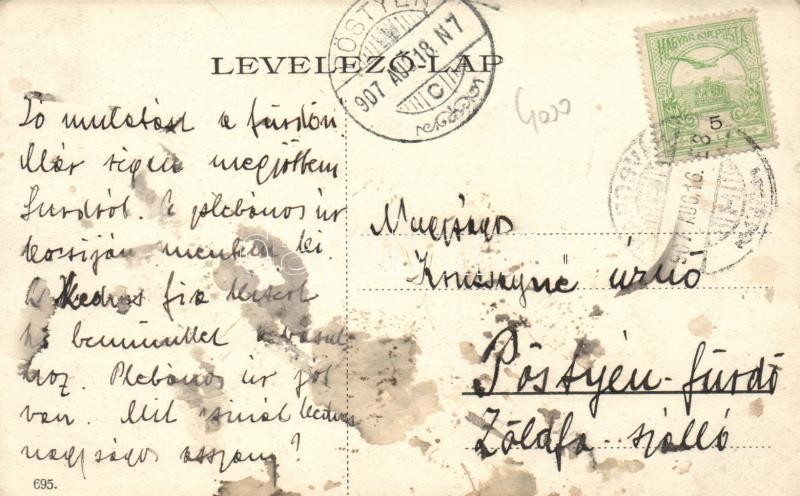 LEVELEZŐ-LAP
PÖSTYÉN
907 AUG. 18. N7
C
MAGYAR KIR. POSTA
5
907 AUG. 16.
Jó mulatást a fürdőn
Már régen megjöttem
Surdról. A plébános úr
kocsiján mentem ki.
A kedves fia
be bennünket
hoz. Plébános úr jól
van. Mit csinál kedves
nagyságos asszony?
Nagyságos
Koncsekyné úrnő
Pöstyén-fürdő
Zöldfa-szálló
695.